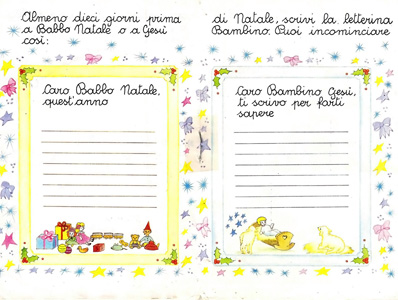 Almeno dieci giorni prima di Natale, scrivi la letterina
a Babbo Natale o a Gesù Bambino. Puoi incominciare
così:
Caro Babbo Natale,
quest'anno
Caro Bambino Gesù,
ti scrivo per farti
sapere